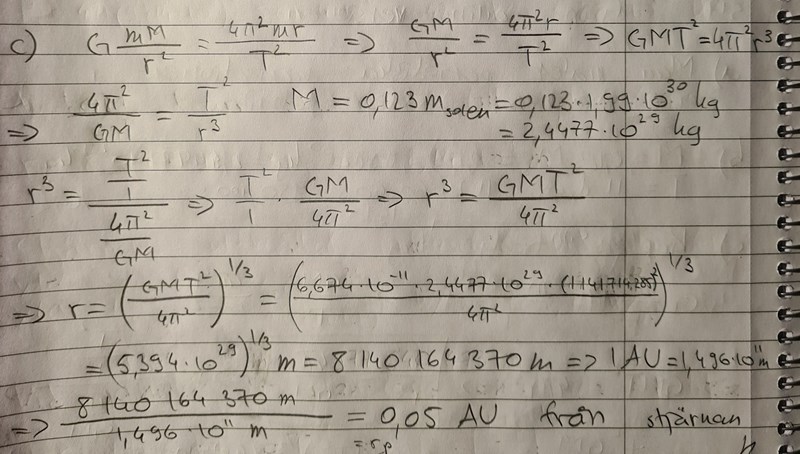 c) G mM/r² = 4π²mr/T² => GM/r² = 4π²r/T² => GMT² = 4π²r³
=> 4π²/GM = T²/r³ M = 0,123 m_solen = 0,123·1,99·10³⁰ kg
= 2,4477·10²⁹ kg
r³ = (T²/1)/(4π²/GM) => T²/1 · GM/4π² => r³ = GMT²/4π²
=> r = (GMT²/4π²)^1/3 = (6,674·10⁻¹¹·2,4477·10²⁹·(1141714,285)²/4π²)^1/3
= (5,394·10²⁹)^1/3 m = 8 140 164 370 m => 1 AU = 1,496·10¹¹ m
=> 8 140 164 370 m/1,496·10¹¹ m = 0,05 AU från stjärnan
= r_p